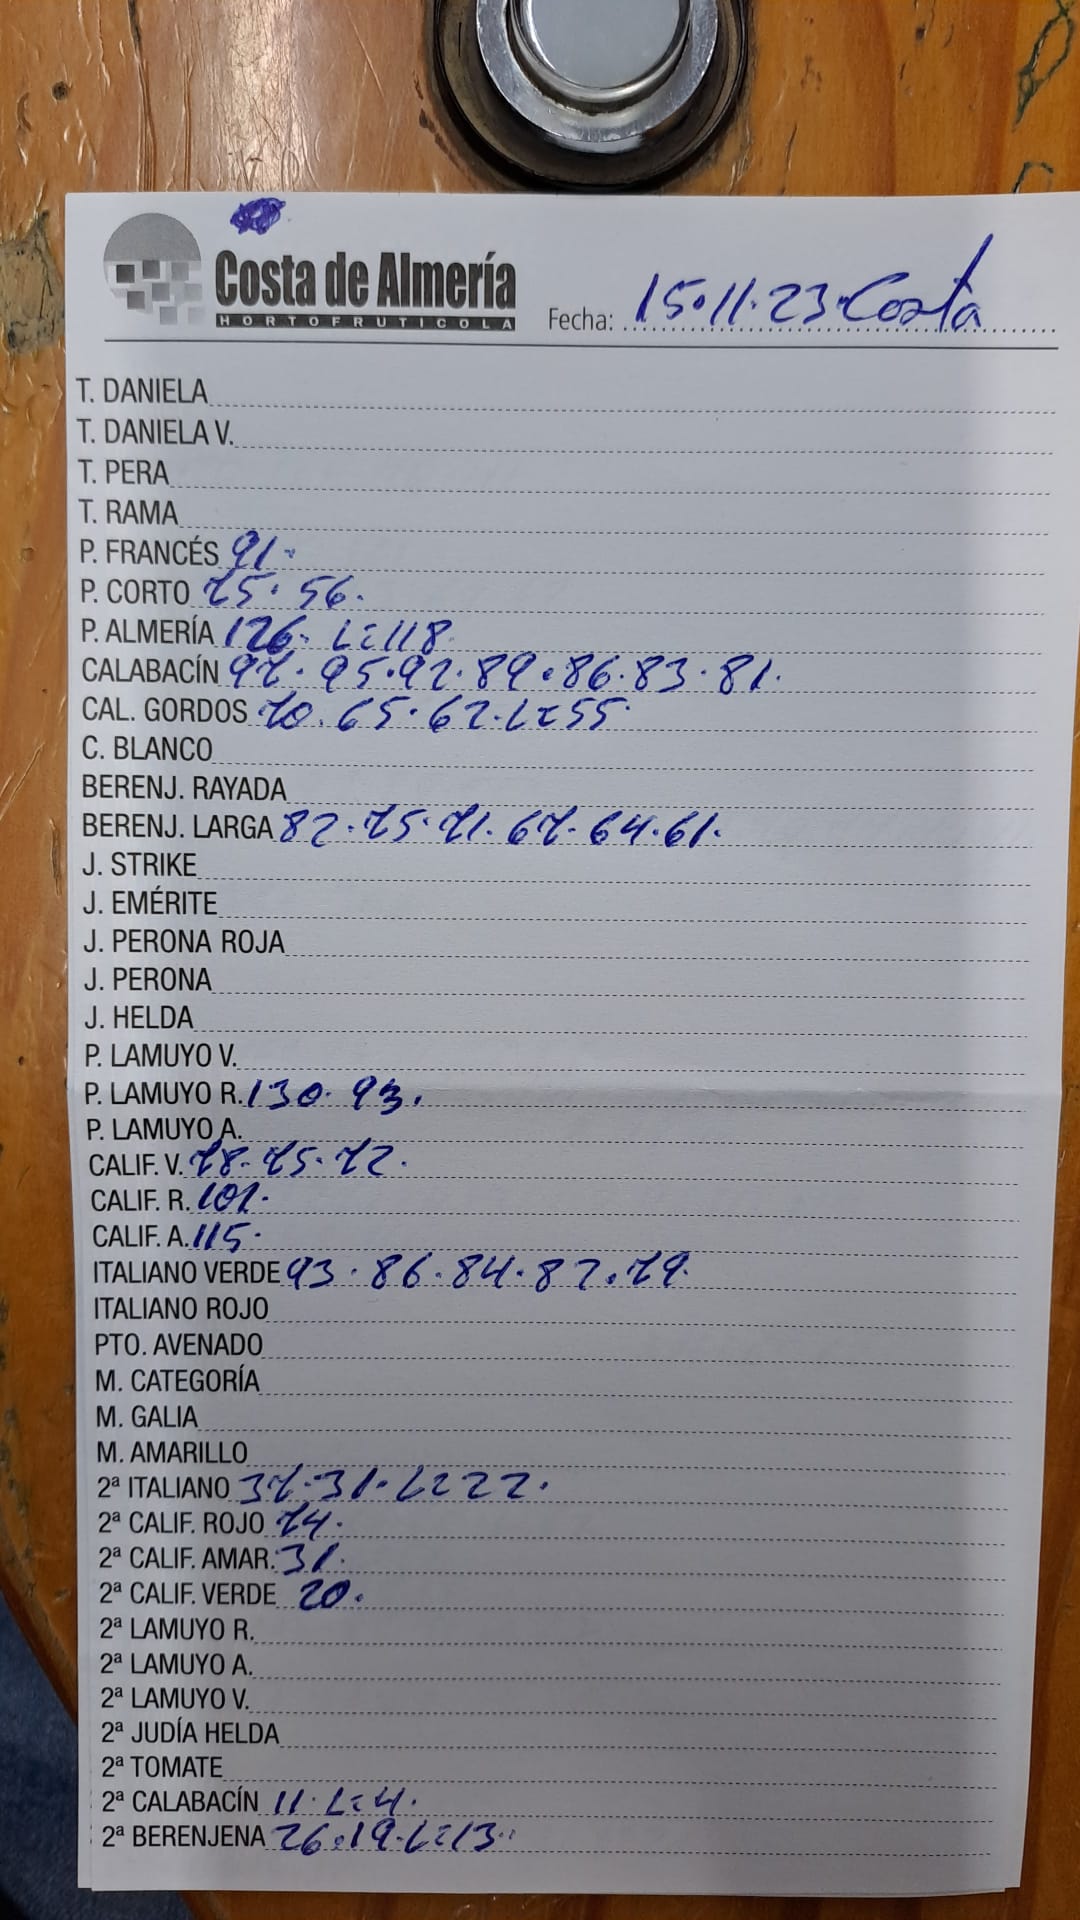 Costa de Almería
HORTOFRUTICOLA
Fecha: 15.11.23 Costa
T. DANIELA
T. DANIELA V.
T. PERA
T. RAMA
P. FRANCÉS 91.
P. CORTO 75. 56.
P. ALMERÍA 126. L=118
CALABACÍN 97. 95.92.89.86.83.81.
CAL. GORDOS 70.65.62.L=55.
C. BLANCO
BERENJ. RAYADA
BERENJ. LARGA 82.75.71.67.64.61.
J. STRIKE
J. EMÉRITE
J. PERONA ROJA
J. PERONA
J. HELDA
P. LAMUYO V.
P. LAMUYO R. 130. 93.
P. LAMUYO A.
CALIF. V. 78.75.72.
CALIF. R. 107.
CALIF. A. 115.
ITALIANO VERDE 93.86.84.82.79.
ITALIANO ROJO
PTO. AVENADO
M. CATEGORÍA
M. GALIA
M. AMARILLO
2ª ITALIANO 37.31.L=22.
2ª CALIF. ROJO 74.
2ª CALIF. AMAR. 31.
2ª CALIF. VERDE 20.
2ª LAMUYO R.
2ª LAMUYO A.
2ª LAMUYO V.
2ª JUDÍA HELDA
2ª TOMATE
2ª CALABACÍN 11. L=4.
2ª BERENJENA 26.19.L=13.